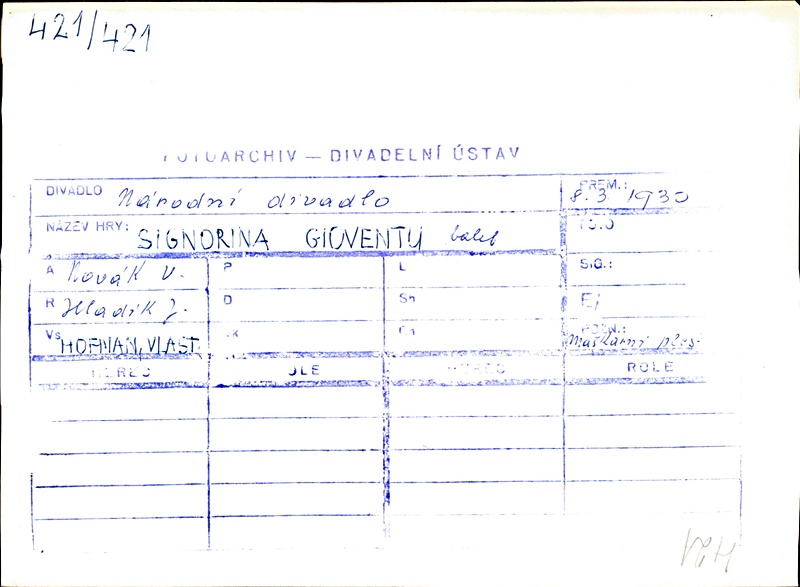 421/421
FOTOARCHIV — DIVADELNÍ ÚSTAV
DIVADLO Národní divadlo PREM.: 8. 3 1930
NÁZEV HRY: SIGNORINA GIOVENTÚ balet
A Novák V. P L SIG.:
R Hladík J. D Sn
Vs HOFMAN, VLAST. POZN.: Maškarní ples
HEREC ROLE HEREC ROLE